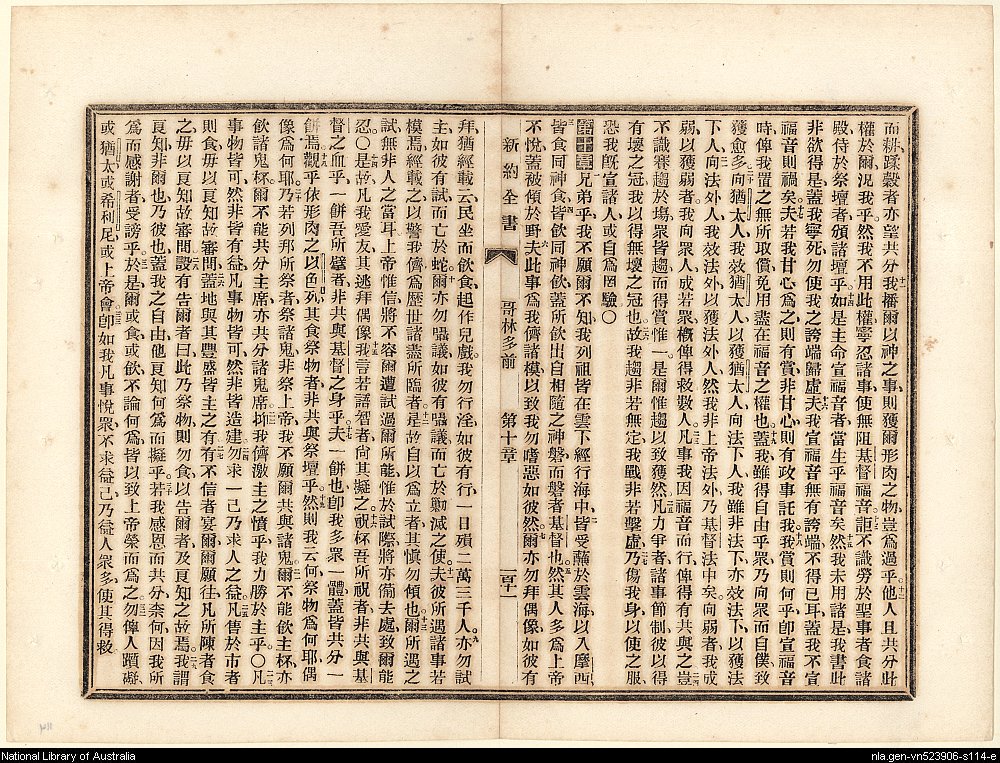 而耕蹂穀者亦望共分我播爾以神之事則獲爾形肉之物豈爲過乎他人且共分此
權於爾況我乎然我不用此權寧忍諸事使無阻基督福音詎不識勞於聖事者食諸
殿侍於祭壇者頒諸壇乎如是主命宣福音者當生乎福音矣然我未用諸是我書此
非欲得是蓋我寧死勿使我之誇端歸虛夫我宣福音無有誇端不得已耳蓋我不宣
福音則禍矣夫若我甘心爲之則有賞非甘心則有政事託我我賞則何乎卽宣福音
時俾我置之無所取償免用盡在福音之權也蓋我雖得自由乎眾乃向眾而自僕致
獲愈多向猶太人我效猶太人以獲猶太人向法下人我雖非法下亦效法下以獲法
下人向法外人我效法外以獲法外人然我非上帝法外乃基督法中矣向弱者我成
弱以獲弱者我向眾人成若眾概俾得救數人凡事我因福音而行俾得有共與之豈
不識賽趨於塲眾皆趨而得賞惟一是爾惟趨以致獲然凡力爭者諸事節制彼以得
有壞之冠我以得無壞之冠也故我趨非若無定我戰非若擊虛乃傷我身以使之服
恐我旣宣諸人或自爲罔驗〇
第十章兄弟乎我不願爾不知我列祖皆在雲下經行海中皆受蘸於雲海以入摩西
皆食同神食皆飲同神飲蓋所飲出自相隨之神磐而磐者基督也然其人多爲上帝
不悅蓋被傾於野夫此事爲我儕諸模以致我勿嗜惡如彼然爾亦勿拜偶像如彼有
新約全書 哥林多前 第十章 一百十二
拜猶經載云民坐而飲食起作兒戲我勿行淫如彼有行一日殞二萬三千人亦勿試
主如彼有試而亡於蛇爾亦勿囁議如彼有囁議而亡於勦滅之使夫彼所遇諸事若
模焉經載之以警我儕爲歷世諸盡所臨者是故自以爲立者其愼勿傾也爾所遇之
試無非人之當耳上帝惟信將不容爾遭試過爾所能惟於試際將亦備去處致爾能
忍〇是故凡我愛友其逃拜偶像我言若語智者尚其擬之祝杯吾所祝者非共與基
督之血乎一餅吾所擘者非共與基督之身乎夫一餅也卽我多眾一體蓋皆共分一
餅焉觀乎依形肉之以色列其食祭物者非共與祭壇乎然則我云何祭物爲何耶偶
像爲何耶乃若列邦所祭者祭諸鬼非祭上帝我不願爾共與諸鬼爾不能飲主杯亦
飲諸鬼杯爾不能共分主席亦共分諸鬼席抑我儕激主之憤乎我力勝於主乎〇凡
事物皆可然非皆有益凡事物皆可然非皆造建勿求一己乃求人之益凡售於市者
則食毋以良知故審問蓋地與其豐盛皆主之有有不信者宴爾爾願往凡所陳者食
之毋以良知故審問設有告爾者曰此乃祭物則勿食以告爾者及良知之故焉我謂
良知非爾也乃彼也蓋我之自由他良知何爲而擬乎若我感恩而共分奈何因我所
爲而感謝者受謗乎於是爾或食或飲不論何爲皆以致上帝榮而爲之勿俾人躓礙
或猶太或希利尼或上帝會卽如我凡事悅眾不求益己乃益人眾多使其得救
National Library of Australia
nla.gen-vn523906-s114-e